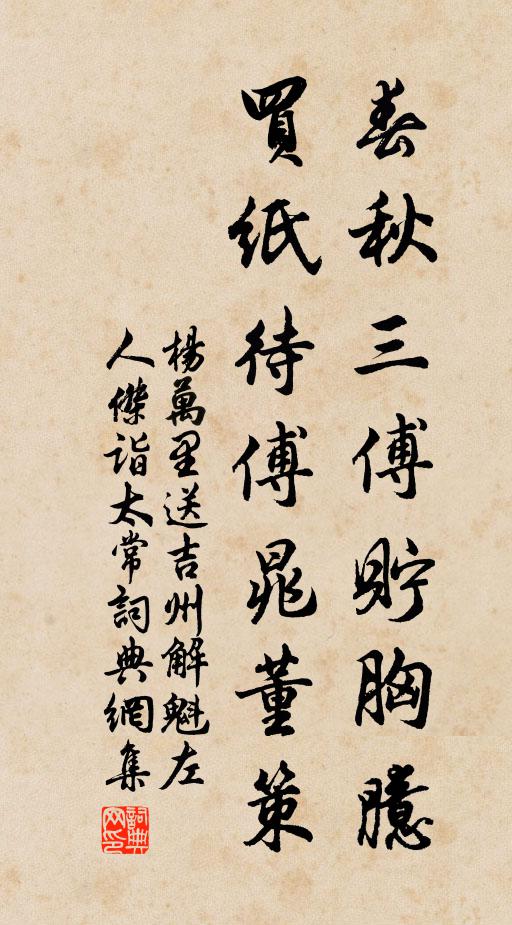 春秋三傅貯胸臆
買紙待傅晁董策
楊萬里送吉州解魁左
人傑詣太常詞典網集
詞典
网印